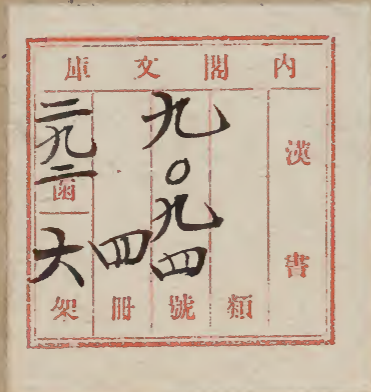 内閣文庫
漢書
類
九〇九四號
四冊
二九二函
六架